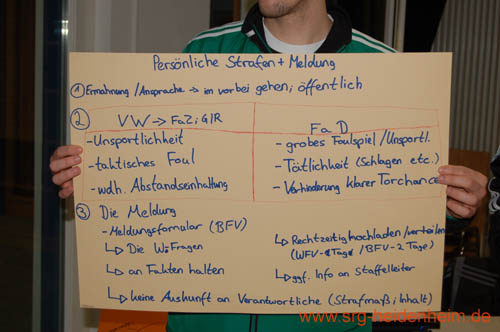 Persönliche Strafen + Meldung
① Ermahnung/Ansprache → im vorbei gehen; öffentlich
② VW → FaZiGIR
FaD
- Unsportlichkeit
- grobes Foulspiel / Unsportl.
- taktisches Foul
- Tätlichkeit (Schlagen etc.)
- wdh. Abstandseinhaltung
- Verhinderung klarer Torchance
③ Die Meldung
- Meldungsformular (BFV)
↳ Die W-Fragen
↳ an Fakten halten
↳ Rechtzeitig hochladen / verteilen
(WFV - Tage / BFV - 2 Tage)
↳ ggf. Info an Staffelleiter
↳ keine Auskunft an Verantwortliche (Strafmaß; Inhalt)
www.srg-heidenheim.de